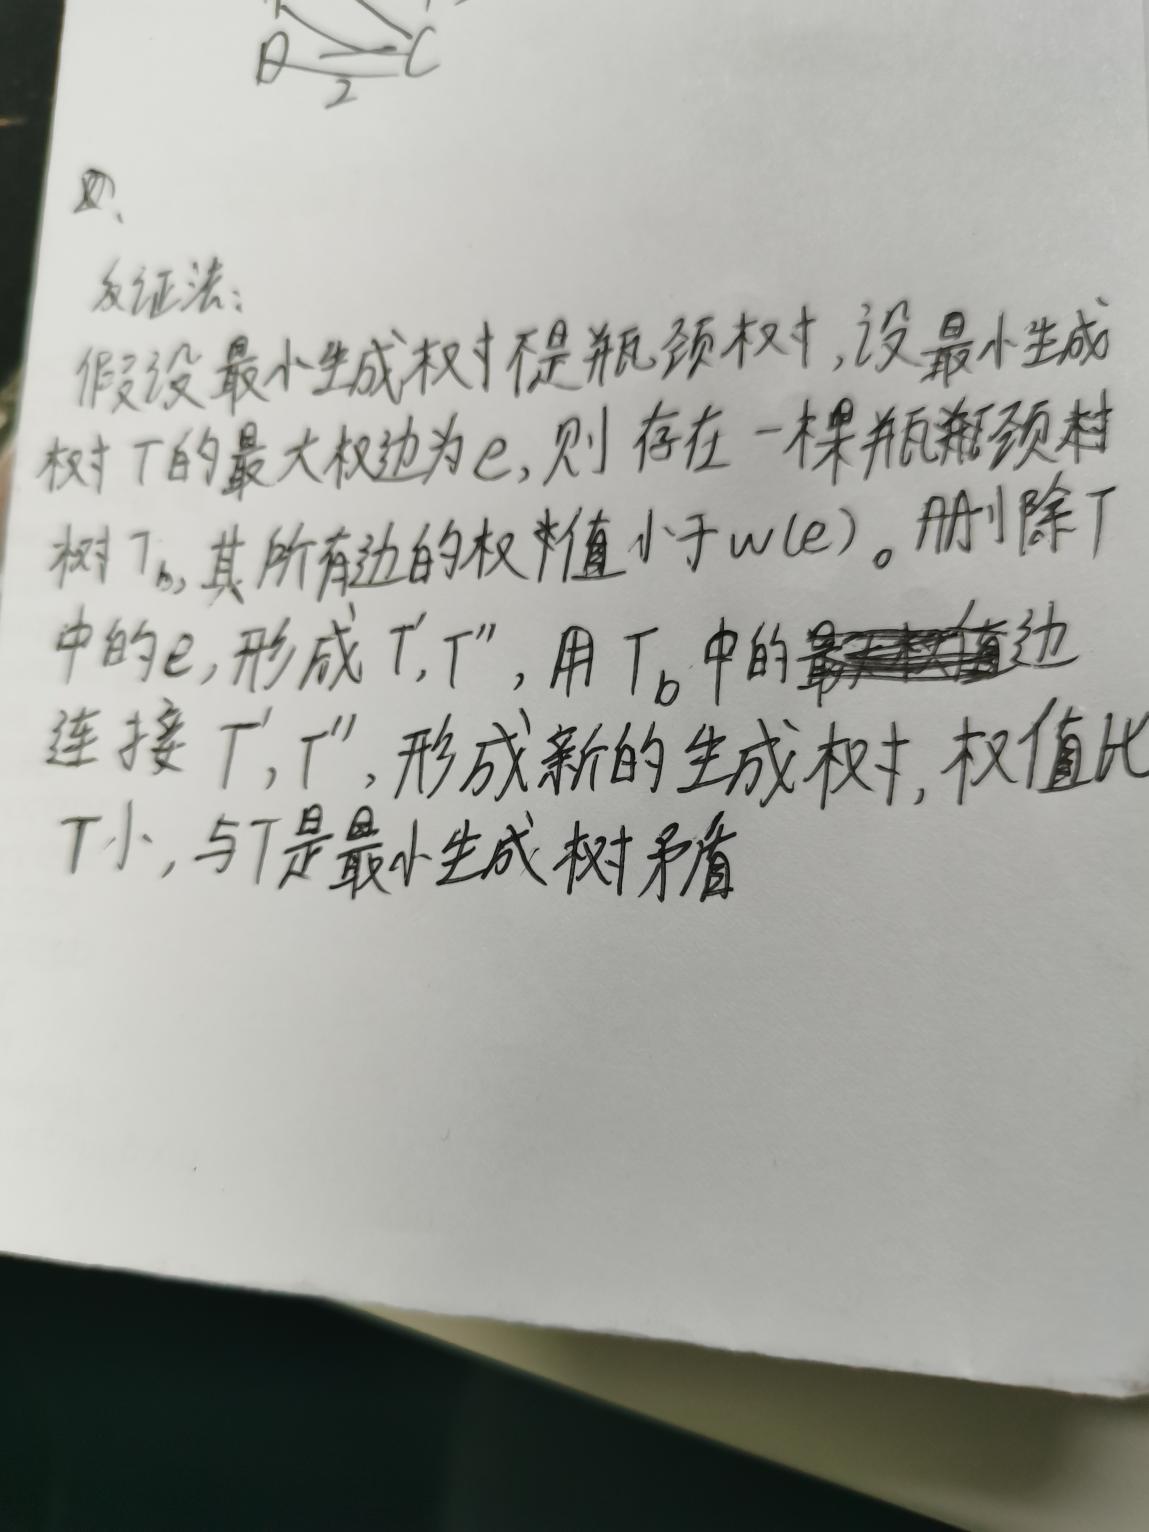 D C
2
四、
反证法:
假设最小生成树不是瓶颈树,设最小生成
树T的最大权边为e,则存在一棵瓶瓶颈树
树Tb,其所有边的权值小于w(e)。删除T
中的e,形成T',T'',用Tb中的边
连接T',T'',形成新的生成树,权值比
T小,与T是最小生成树矛盾